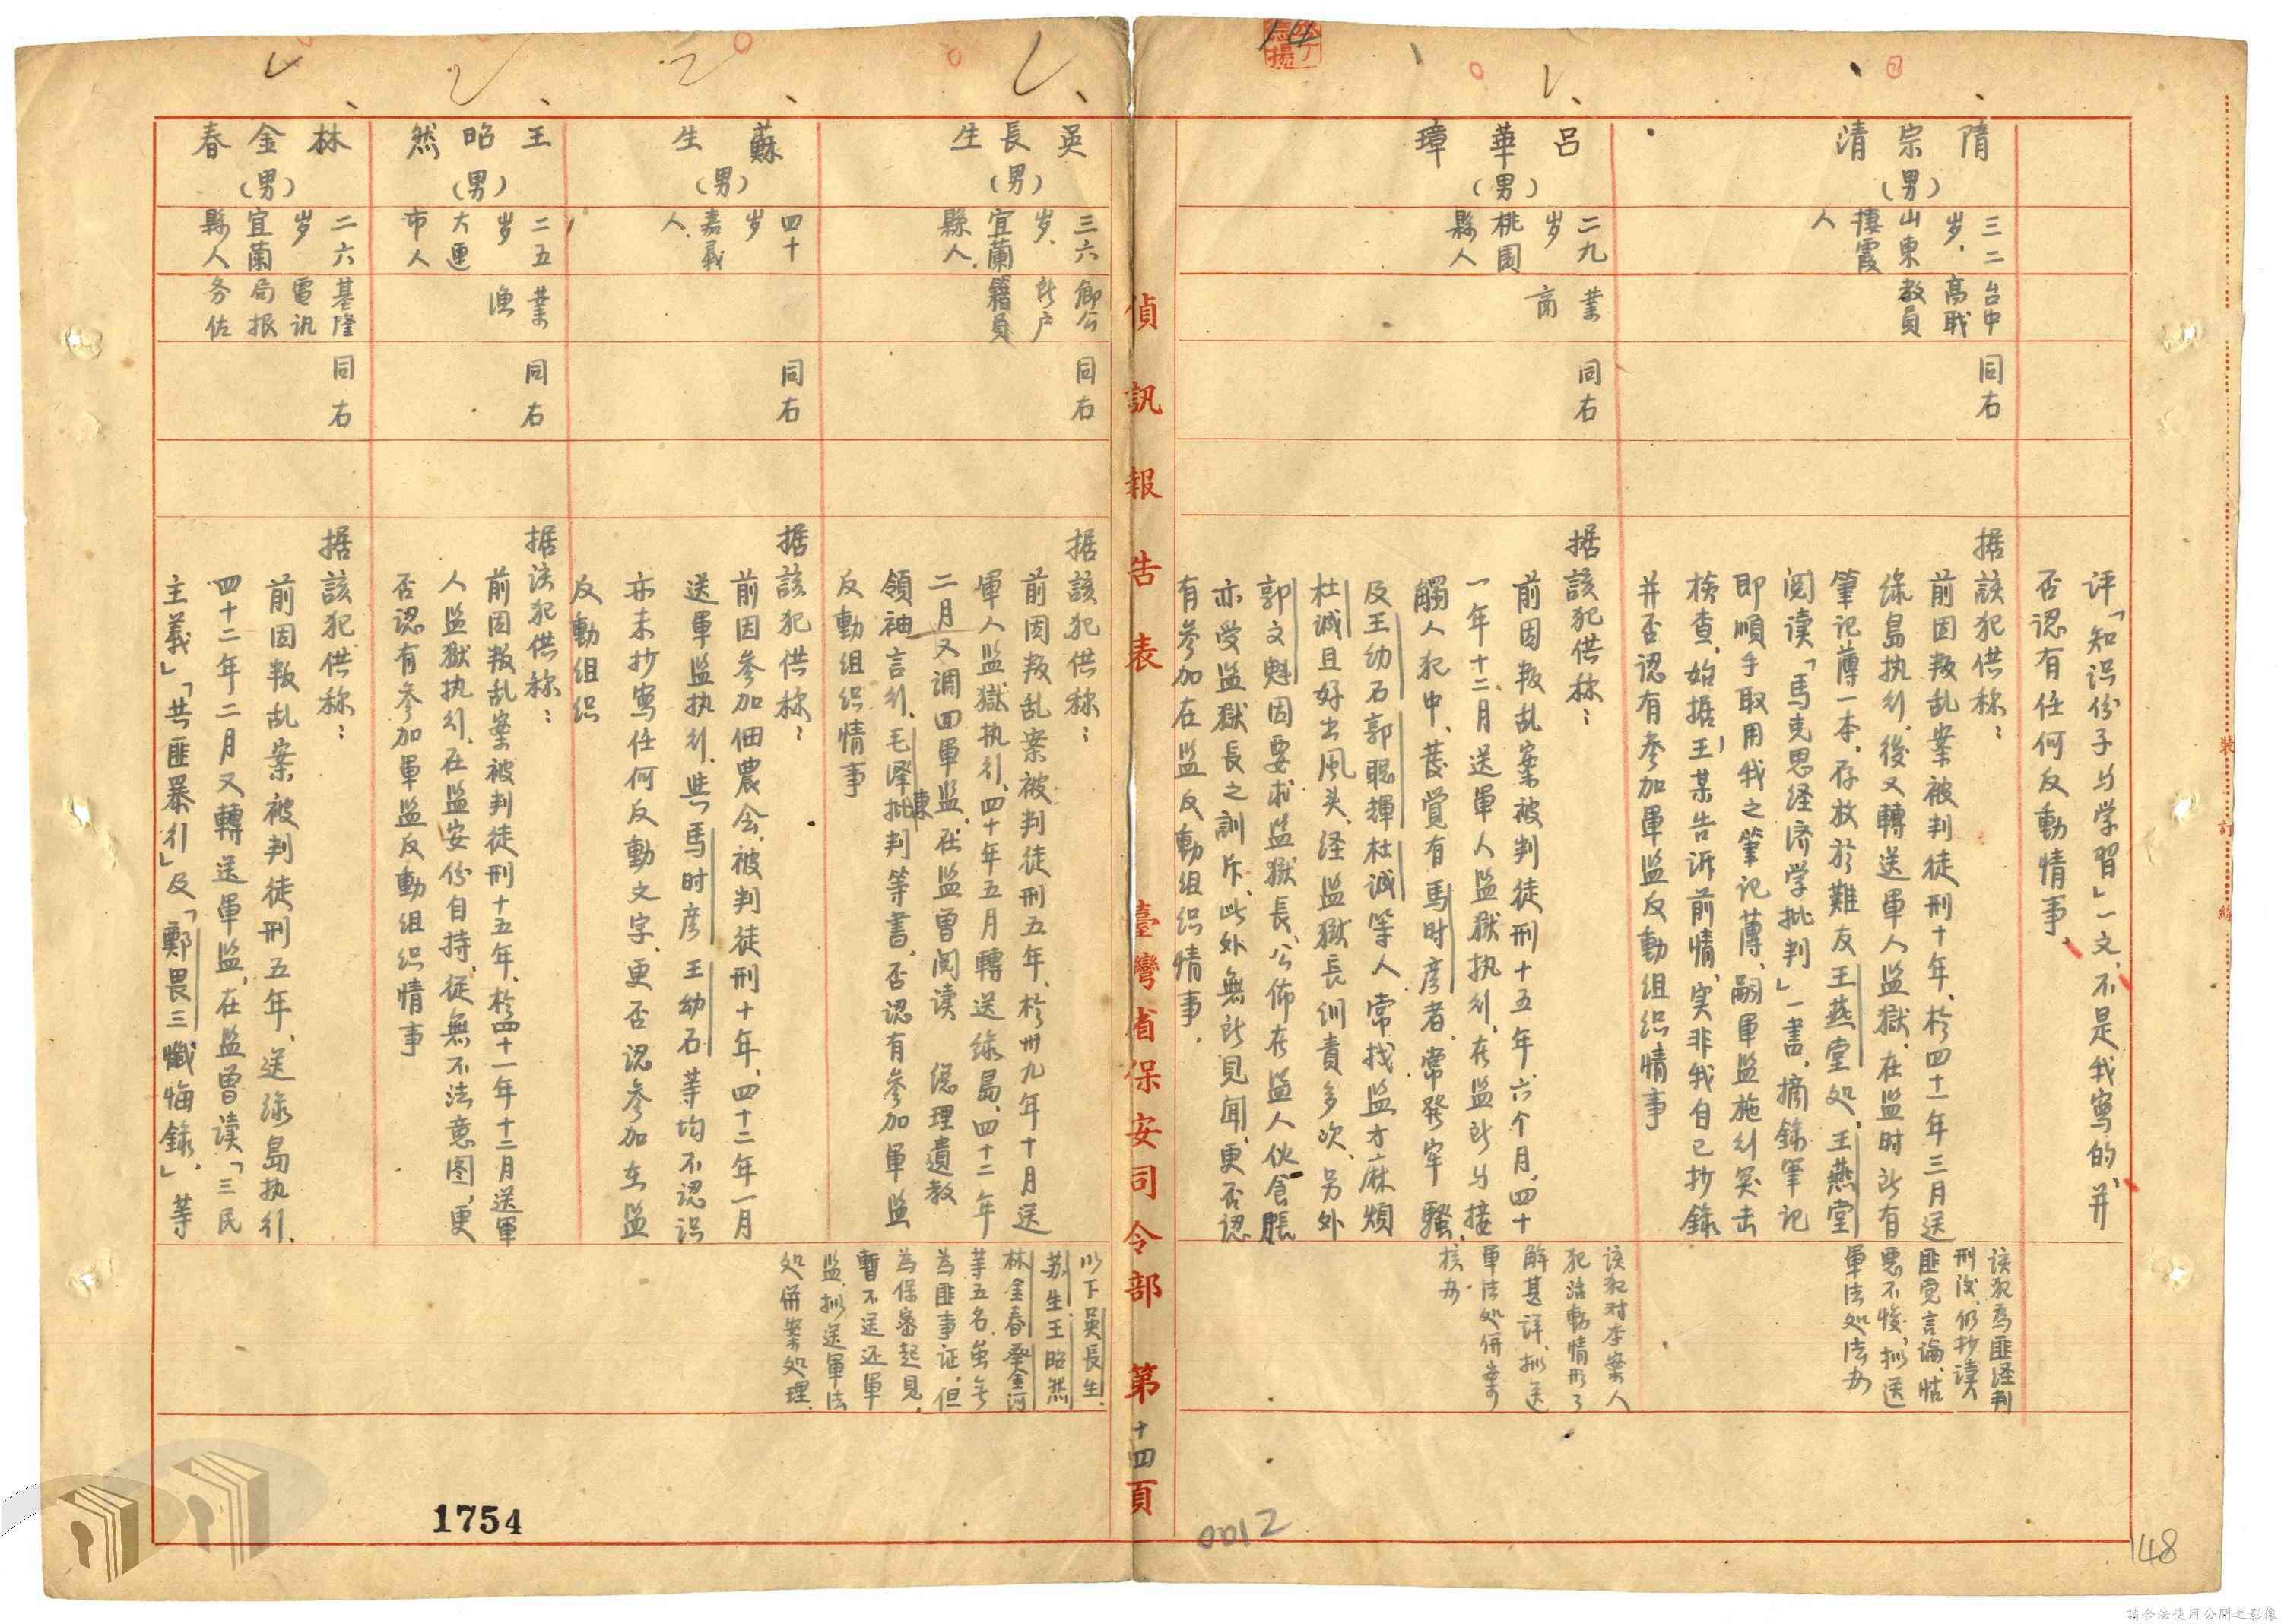 评「知识份子与学習」一文、不是我寫的、并
否認有任何反動情事、
隋宗清
(男)
三二
岁、
山東
棲霞
人
台中
高耺
教員
同右
据該犯供称：
前因叛乱案被判徒刑十年、於四十一年三月送
绿島执行、後又轉送軍人监獄、在监时所有
筆记薄一本、存放於難友王燕堂处、王燕堂
阅读「馬克思经济学批判」一書、摘錄筆记
即順手取用我之筆记薄、嗣軍监施行突击
檢查、始据王某告诉前情、实非我自己抄錄
并否認有参加軍监反動組织情事
该犯為匪经判
刑后、仍抄读
匪党言論、怙
恶不悛、拟送
軍法处法办
呂華璋
(男)
二九
岁
桃園
縣人
業
商
同右
据該犯供称：
前因叛乱案被判徒刑十五年六个月、四十
一年十二月送軍人监獄执行、在监所与接
觸人犯中、發覚有馬时彦者、常發牢騷、
及王幼石郭聪輝杜诚等人、常找监方麻煩
杜诚且好出風头、经监獄長训責多次、另外
郭文魁因要求监獄長、公佈在监人伙食賬
亦受监獄長之訓斥、此外無所見聞、更否認
有参加在监反動組织情事、
该犯对本案人
犯活動情形了
解甚详、拟送
軍法处併案
核办
偵訊報告表 臺灣省保安司令部 第十四頁
吳長生
(男)
三六
岁、
宜蘭
縣人、
鄉公
所户
籍員
同右
据該犯供称：
前因叛乱案被判徒刑五年、於卅九年十月送
軍人监獄执行、四十年五月轉送绿島、四十二年
二月又调回軍监、在监曾阅读 總理遺教
領袖言行、毛泽東批判等書、否認有参加軍监
反動組织情事
以下吳長生、
苏生、王昭然
林金春蔡金河
等五名、虽無
為匪事证、但
為保密起見、
暫不送还軍
监、拟送軍法
处併案处理、
蘇生
(男)
四十
岁
嘉義
人、
同右
据該犯供称：
前因参加佃農会、被判徒刑十年、四十二年一月
送軍监执行、与馬时彦王幼石等均不認识
亦未抄寫任何反動文字、更否認参加在监
反動組织
王昭然
(男)
二五
岁
大連
市人
業
漁
同右
据该犯供称：
前因叛乱案被判徒刑十五年、於四十一年十二月送軍
人监獄执行、在监安份自持、從無不法意图、更
否認有参加軍监反動組织情事
林金春
(男)
二六
岁
宜蘭
縣人
基隆
電讯
局报
务佐
同右
据該犯供称：
前因叛乱案被判徒刑五年、送绿島执行、
四十二年二月又轉送軍监、在监曾读「三民
主義」「共匪暴行」及「鄭畏三懺悔錄」等
1754
0012
148
14
裝訂線
請合法使用公開之影像